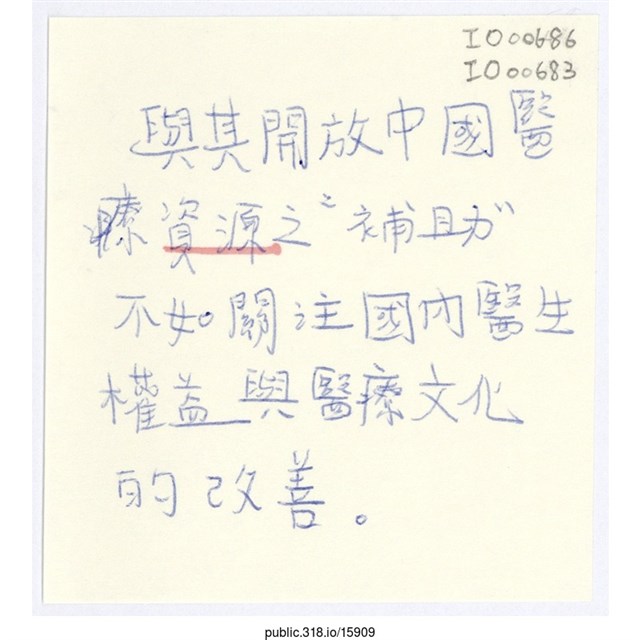 IO00686
IO00683
與其開放中國醫
療資源之"補助"
不如關注國內醫生
權益與醫療文化
的改善。
public.318.io/15909